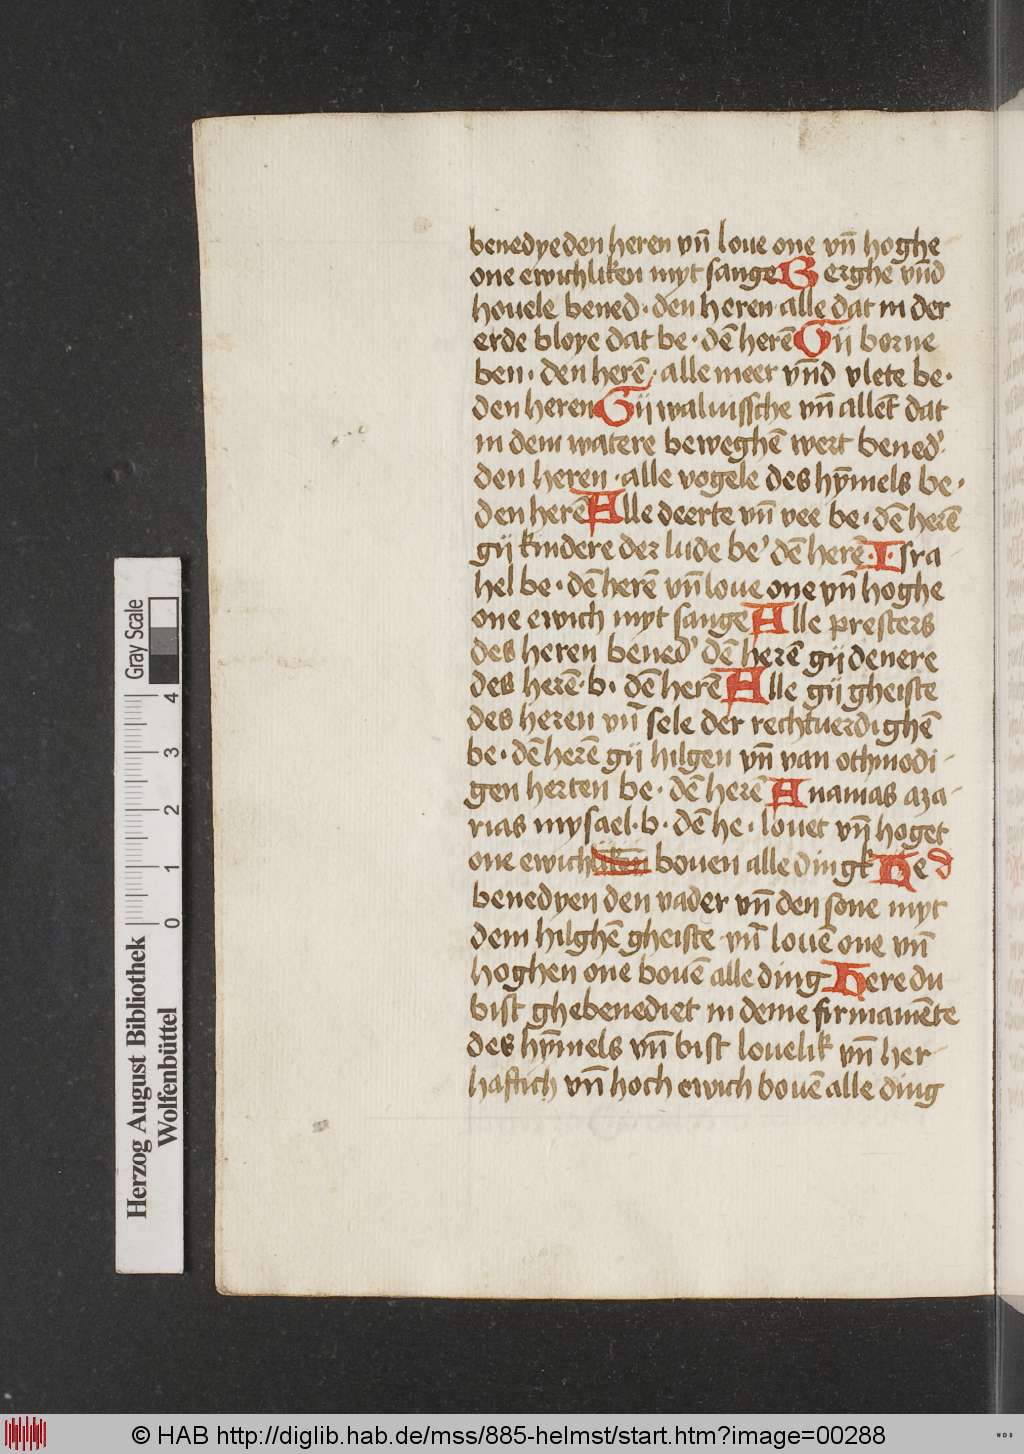 benedye den heren vn̄ loue one vn̄ hoghe
one ewichliken myt sange Berghe vn̄d
houele bened · den heren alle dat in der
erde bloye dat be · dē herē Gij borne
ben · den herē · alle meer vn̄d vlete be ·
den heren Gij waluissche vn̄ allēt dat
in dem watere beweghē wert bened'
den heren · alle vogele des hȳmels be ·
den herē Alle deerte vn̄ vee be · dē herē
gij kindere der lude be' dē herē · I · sra
hel be · dē herē vn̄ loue one vn̄ hoghe
one ewich myt sange Alle presters
des heren bened' dē herē gij denere
des herē · b · dē herē Alle gij gheiste
des heren vn̄ sele der rechtuerdighē
be · dē herē gij hilgen vn̄ van othmodi
gen herten be · dē herē Ananias aza
rias mysael · b · dē he · louet vn̄ hoget
one ewichliken bouen alle dingk He d
benedyen den vader vn̄ den sone myt
dem hilghē gheiste vn̄ louē one vn̄
hoghen one bouē alle ding Here du
bist ghebenediet in deme firmamēte
des hȳmels vn̄ bist louelik vn̄ her
haftich vn̄ hoch ewich bouē alle ding
Gray Scale
0 1 2 3 4
Herzog August Bibliothek
Wolfenbüttel
© HAB http://diglib.hab.de/mss/885-helmst/start.htm?image=00288